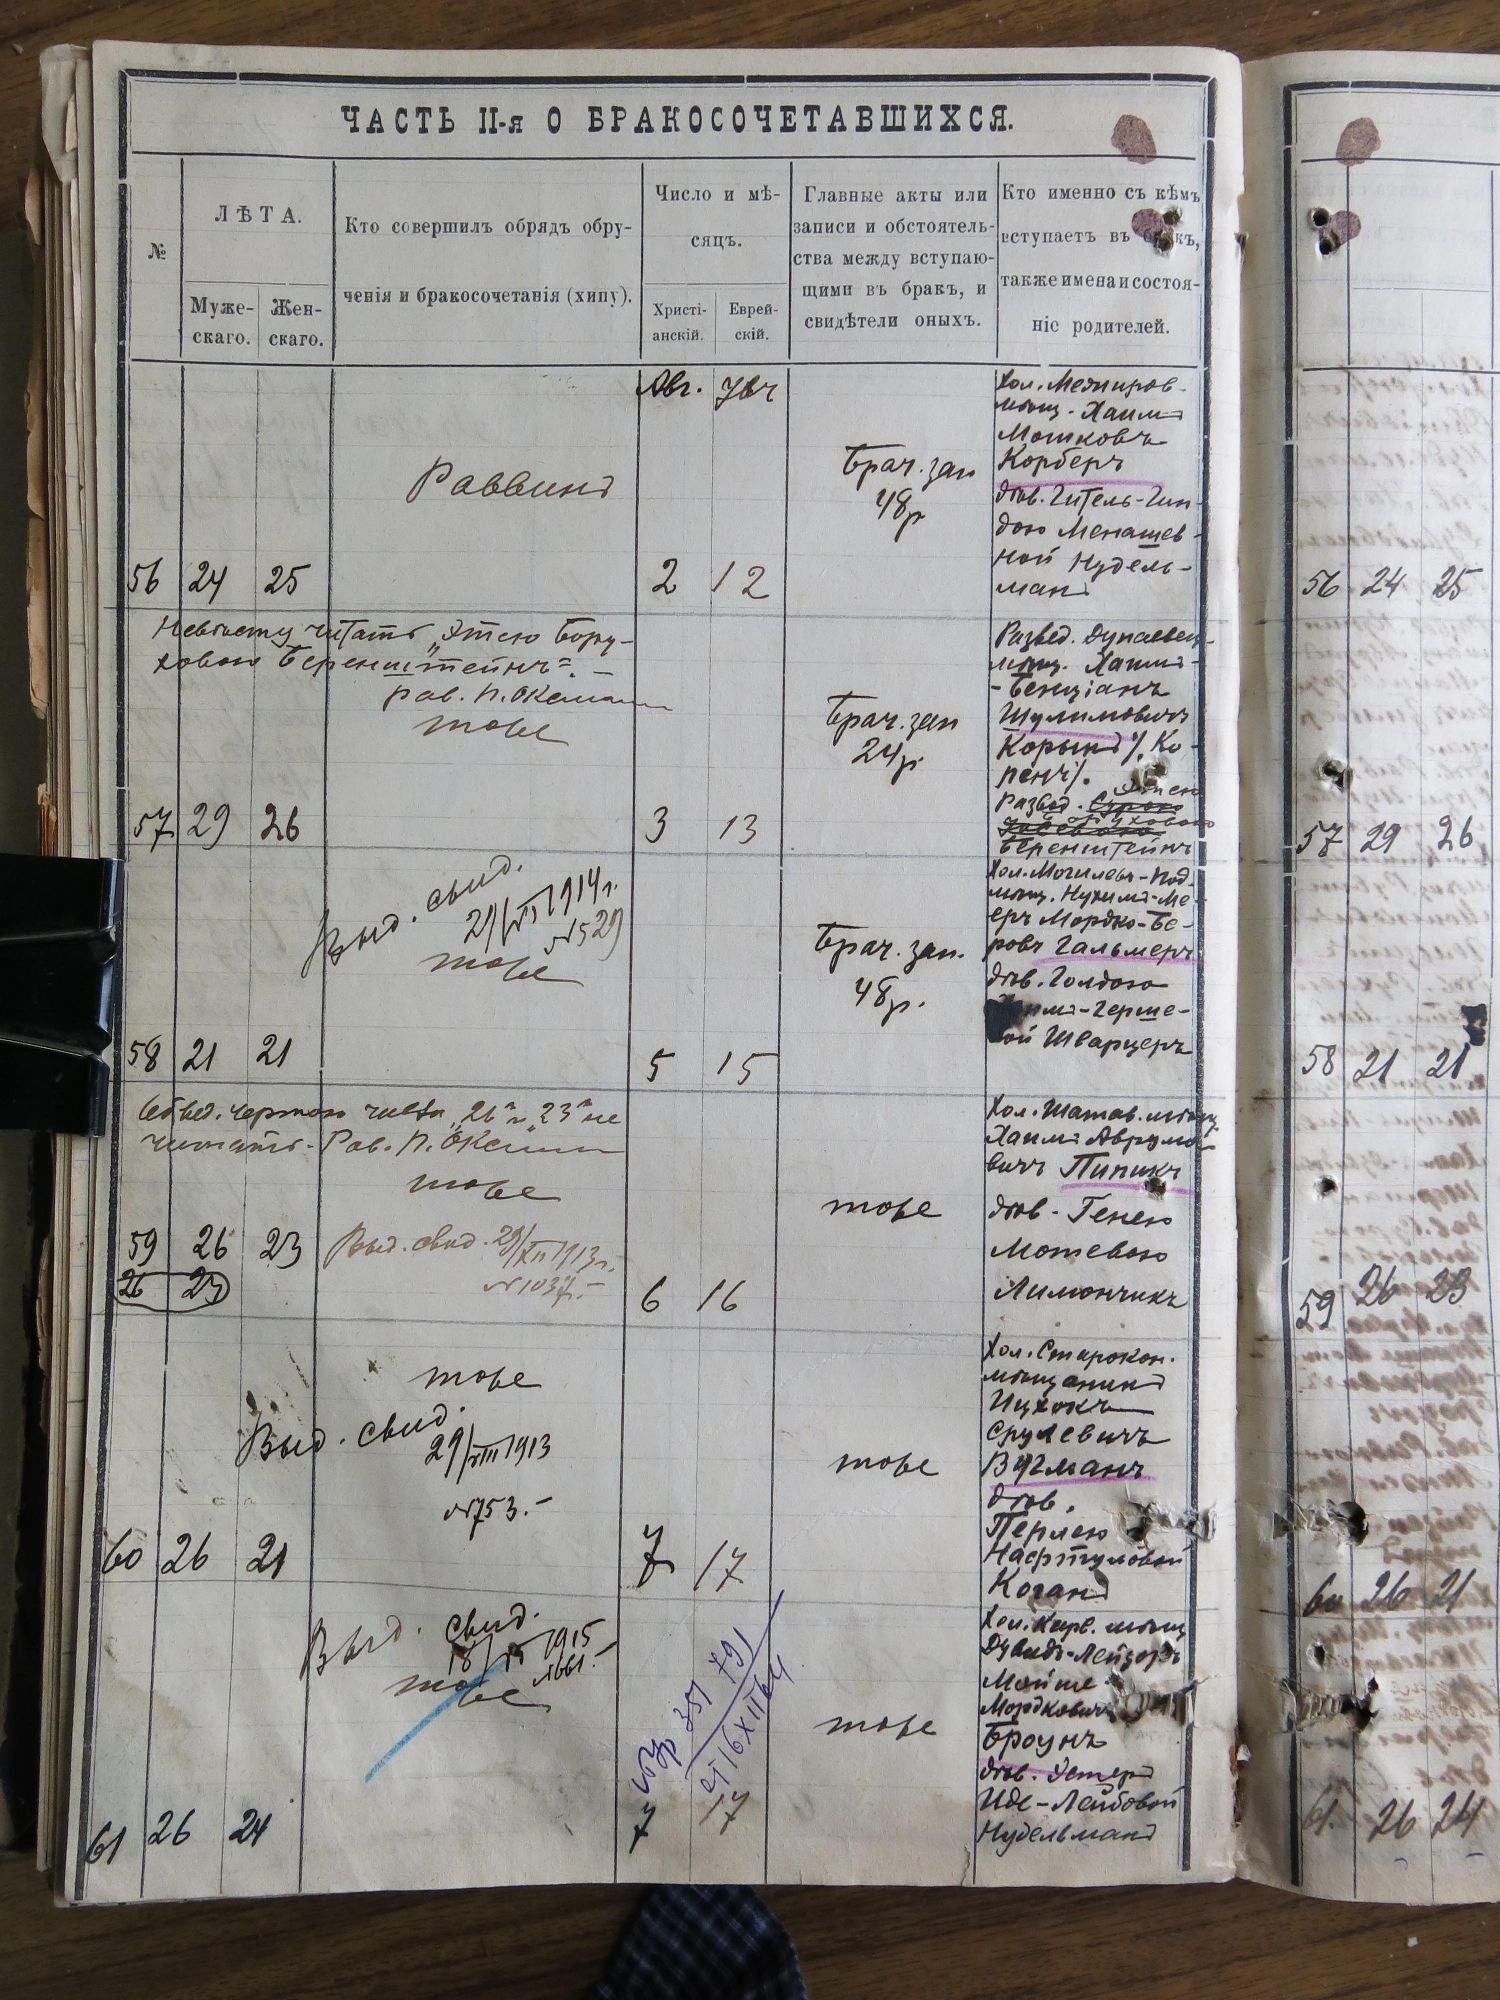 ЧАСТЬ II-я О БРАКОСОЧЕТАВШИХСЯ.
№
ЛѢТА.
Муже-
скаго.
Жен-
скаго.
Кто совершилъ обрядъ обру-
ченія и бракосочетанія (хипу).
Число и мѣ-
сяцъ.
Христі-
анскій.
Еврей-
скій.
Главные акты или
записи и обстоятель-
ства между вступаю-
щими въ бракъ, и
свидѣтели оныхъ.
Кто именно съ кѣмъ
вступаетъ въ бракъ,
также имена и состоя-
ніе родителей.
56 24 25
Раввинъ
Авг.
2 12
Брач. зап
48 р
Хол. Межиров-
мѣщ. Хаимъ
Мошковъ
Корберъ
дѣв. Гитель-Гин-
дою Менашев-
ной Нудель-
манъ
Невѣсту читать „Этею Бору-
ховою Беренштейнъ".-
рав. П.
тоже
57 29 26
3 13
Брач. зап
24 р.
Развед. Дунаевец-
мѣщ. Хаимъ-
-Бенціанъ
Шулимовичъ
Корынъ /. Ко-
ренъ /.
Развед. Этею
Боруховою
Беренштейнъ
Выд. свид.
29/VII 1914 г.
№ 529
тоже
58 21 21
5 15
Брач. зап.
48 р.
Хол. Могилевъ-Под.
мѣщ. Нухимъ-Ме-
еръ Мордко-Бе-
ровъ Гальмеръ
дѣв. Голдою
Хаимъ-Герше-
вой Шварцеръ
чертою числа „26" и „23" не
читать. Рав. П.
тоже
59 26 23
26 23
Выд. свид. 29/XII 1913 г.
№ 1037.-
6 16
тоже
Хол. Шатав. мѣщ.
Хаимъ Аврумо-
вичъ Пипикъ
дѣв. Генею
Мошевою
Лимончикъ
тоже
Выд. свид.
29/VIII 1913
№ 753.-
60 26 21
7 17
тоже
Хол. Старокон.
мѣщанинъ
Ицхокъ
Срулевичъ
Вугманъ
дѣв.
Перлею
Нафтуловой
Коганъ
Выд. свид.
1915
тоже
61 26 24
7 17
тоже
Хол. мѣщ
Дувидъ-Лейзоръ
Мойше-
Мордковичъ
Броунъ
дѣв. Эстеръ
Иде-Лейбовой
Нудельманъ
56 24 25
57 29 26
58 21 21
59 26 23
60 26 21
61. 26 24